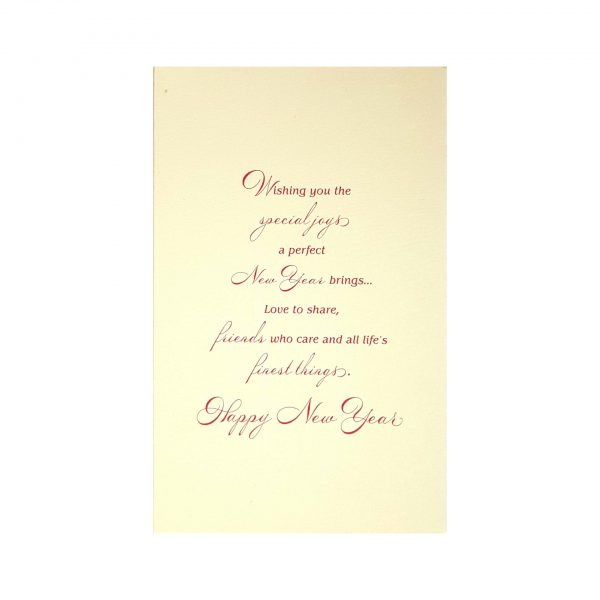 Wishing you the
special joys
a perfect
New Year brings...
Love to share,
friends who care and all life's
finest things.
Happy New Year